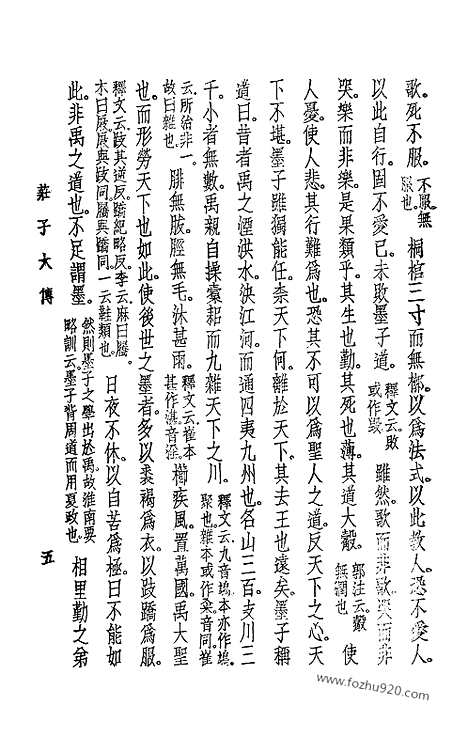 歌。死不服。不服無服也。桐棺三寸而無槨。以為法式。以此教人。恐不愛人。
以此自行。固不愛己。未敗墨子道。釋文云。敗或作毀雖然歌而非歌。哭而非
哭。樂而非樂。是果類乎。其生也勤。其死也薄。其道大觳。郭注云。觳無潤也。使
人憂。使人悲。其行難為也。恐其不可以為聖人之道。反天下之心。天
下不堪。墨子雖獨能任。柰天下何。離於天下。其去王也遠矣。墨子稱
道曰。昔者禹之湮洪水。決江河。而通四夷九州也。名山三百。支川三
千。小者無數。禹親自操橐耜。而九雜天下之川。釋文云。九音鳩。本亦作鳩。聚也。雜本或作。音同。崔
云。所治非一。故曰雜也。腓無胈。脛無毛。沐甚雨。釋文云。崔本甚作湛。音淫。櫛疾風。置萬國。禹大聖
也。而形勞天下也如此。使後世之墨者。多以裘褐為衣。以跂蹻為服。
釋文云。跂其逆反。蹻紀略反。李云。麻曰屩。木曰屐。屐與跂同。屩與蹻同。一云鞋類也。日夜不休。以自苦為極。曰不能如
此。非禹之道也。不足謂墨。然則墨子之學出於禹。故淮南要略訓云。墨子背周道而用夏政也。相里勤之弟
莊子大傳 五
www.fozhu920.com